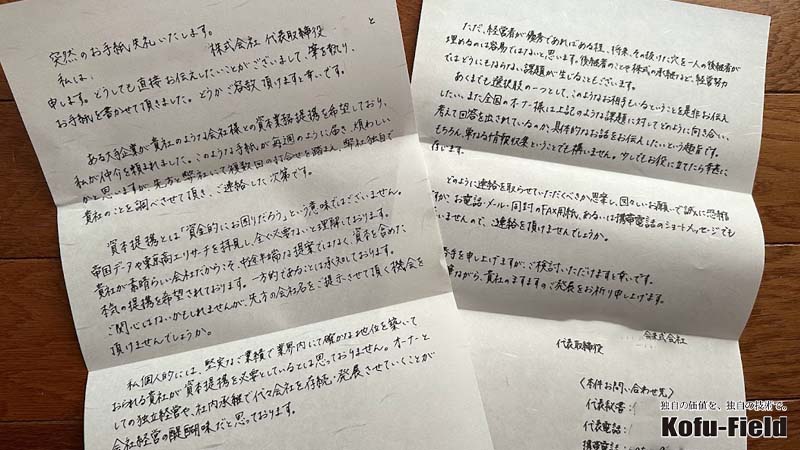 突然のお手紙失礼いたします。
私は、 株式会社 代表取締役 と
申します。どうしても直接お伝えしたいことがございまして、筆を執り、
お手紙を書かせて頂きました。どうかご容赦頂けますと幸いです。
ある大手企業が貴社のような会社様との資本業務提携を希望しており、
私が仲介を頼まれました。このような手紙が毎週のように届き、煩わしい
かと思いますが、先方と弊社にて複数回の打合せを踏まえ、弊社独自で
貴社のことを調べさせて頂き、ご連絡した次第です。
資本提携とは「資金的にお困りだろう」という意味ではございません。
帝国データや東京商工リサーチを拝見し、全く必要ないと理解しております。
貴社が素晴らしい会社だからこそ、中途半端な提案ではなく、資本を含めた
本気の提携を希望されております。一方的であることは承知しております。
ご関心はないかもしれませんが、先方の会社名をご提示させて頂く機会を
頂けませんでしょうか。
私個人的には、堅実なご業績で業界内にて確かな地位を築いて
おられる貴社が資本提携を必要としているとは思っておりません。オーナーと
しての独立経営や、社内承継で代々会社を存続・発展させていくことが
会社経営の醍醐味だと思っております。
ただ、経営者が優秀であればある程、将来、その抜けた穴を一人の後継者が
埋めるのは容易ではないと思います。後継者のことや株式の承継など、経営努力
ではどうにもならない課題が生じることもございます。
あくまでも選択肢の一つとして、このようなお相手もいるということを是非お伝え
したい、また全国のオーナー様は上記のような課題に対してどのように向き合い、
考えて回答を出されているのか、具体的なお話をお伝えしたいという趣旨です。
もちろん、単なる情報収集ということでも構いません。少しでもお役に立てたら幸甚に
存じます。
どのように連絡を取らせていただくべきか思案し、図々しいお願いで誠に恐縮
ですが、お電話・メール・同封のFAX用紙、あるいは携帯電話のショートメッセージでも
いませんので、ご連絡を頂けませんでしょうか。
手を申し上げますが、ご検討いただけますと幸いです。
ながら、貴社のますますのご発展をお祈り申し上げます。
株式会社
代表取締役
〈本件お問い合わせ先〉
代表秘書:
代表電話:
携帯電話:
独自の価値を、独自の技術で。
Kofu-Field